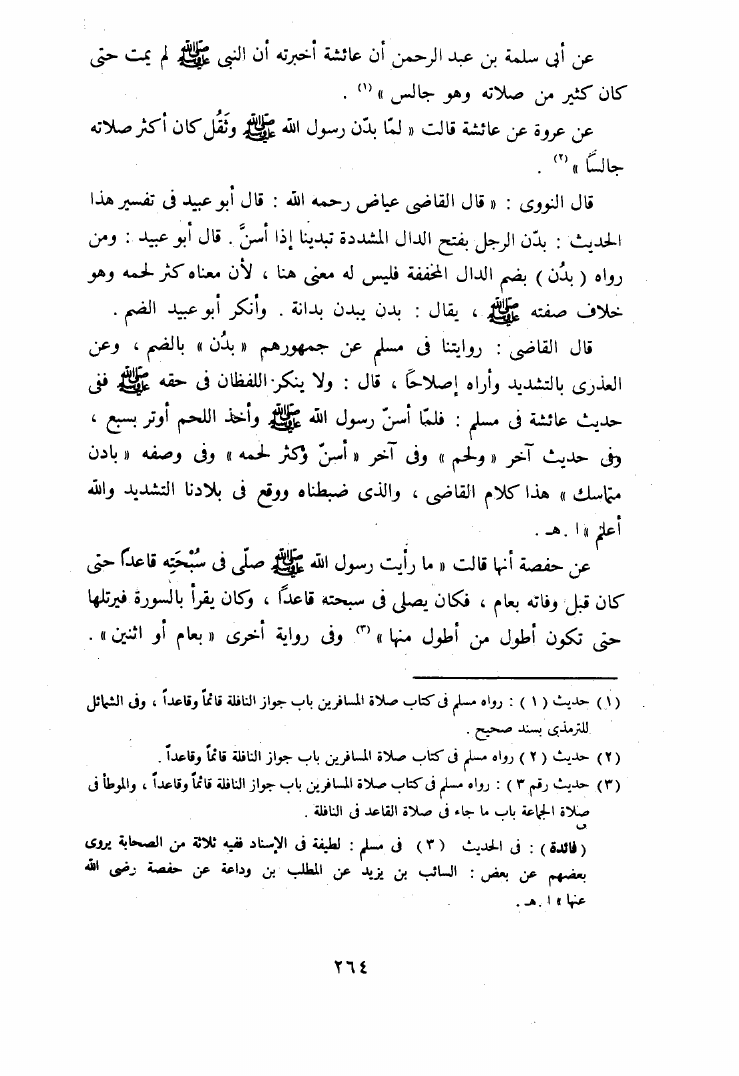 عن أبى سلمة بن عبد الرحمن أن عائشة أخبرته أن النبى ﷺ لم يمت حتى
كان كثير من صلاته وهو جالس » (١) .
عن عروة عن عائشة قالت « لمّا بدّن رسول الله ﷺ وثَقُل كان أكثر صلاته
جالسًا » (٢) .
قال النووى : « قال القاضى عياض رحمه الله : قال أبو عبيد فى تفسير هذا
الحديث : بدّن الرجل بفتح الدال المشددة تبدينا إذا أسنَّ . قال أبو عبيد : ومن
رواه ( بدُن ) بضم الدال المخففة فليس له معنى هنا ، لأن معناه كثر لحمه وهو
خلاف صفته ﷺ ، يقال : بدن يبدن بدانة . وأنكر أبو عبيد الضم .
قال القاضى : روايتنا فى مسلم عن جمهورهم « بدُن » بالضم ، وعن
العذرى بالتشديد وأراه إصلاحًا ، قال : ولا ينكر اللفظان فى حقه ﷺ ففى
حديث عائشة فى مسلم : فلمّا أسنّ رسول الله ﷺ وأخذ اللحم أوتر بسبع ،
وفى حديث آخر « ولحم » وفى آخر « أسنّ وكثر لحمه » وفى وصفه « بادن
متماسك » هذا كلام القاضى ، والذى ضبطناه ووقع فى بلادنا التشديد والله
أعلم » ا . هـ .
عن حفصة أنها قالت « ما رأيت رسول الله ﷺ صلّى فى سُبْحَتِه قاعدًا حتى
كان قبل وفاته بعام ، فكان يصلى فى سبحته قاعدًا ، وكان يقرأ بالسورة فيرتلها
حتى تكون أطول من أطول منها » (٣) وفى رواية أخرى « بعام أو اثنين » .
(١) حديث (١) : رواه مسلم فى كتاب صلاة المسافرين باب جواز النافلة قائماً وقاعداً ، وفى الشمائل
للترمذى بسند صحيح .
(٢) حديث (٢) رواه مسلم فى كتاب صلاة المسافرين باب جواز النافلة قائماً وقاعداً .
(٣) حديث رقم ٣ ) : رواه مسلم فى كتاب صلاة المسافرين باب جواز النافلة قائماً وقاعداً ، والموطأ فى
صلاة الجماعة باب ما جاء فى صلاة القاعد فى النافلة .
( فائدة ) : فى الحديث (٣) فى مسلم : لطيفة فى الإسناد ففيه ثلاثة من الصحابة يروى
بعضهم عن بعض : السائب بن يزيد عن المطلب بن وداعة عن حفصة رضى الله
عنها » ا . هـ .
٢٦٤